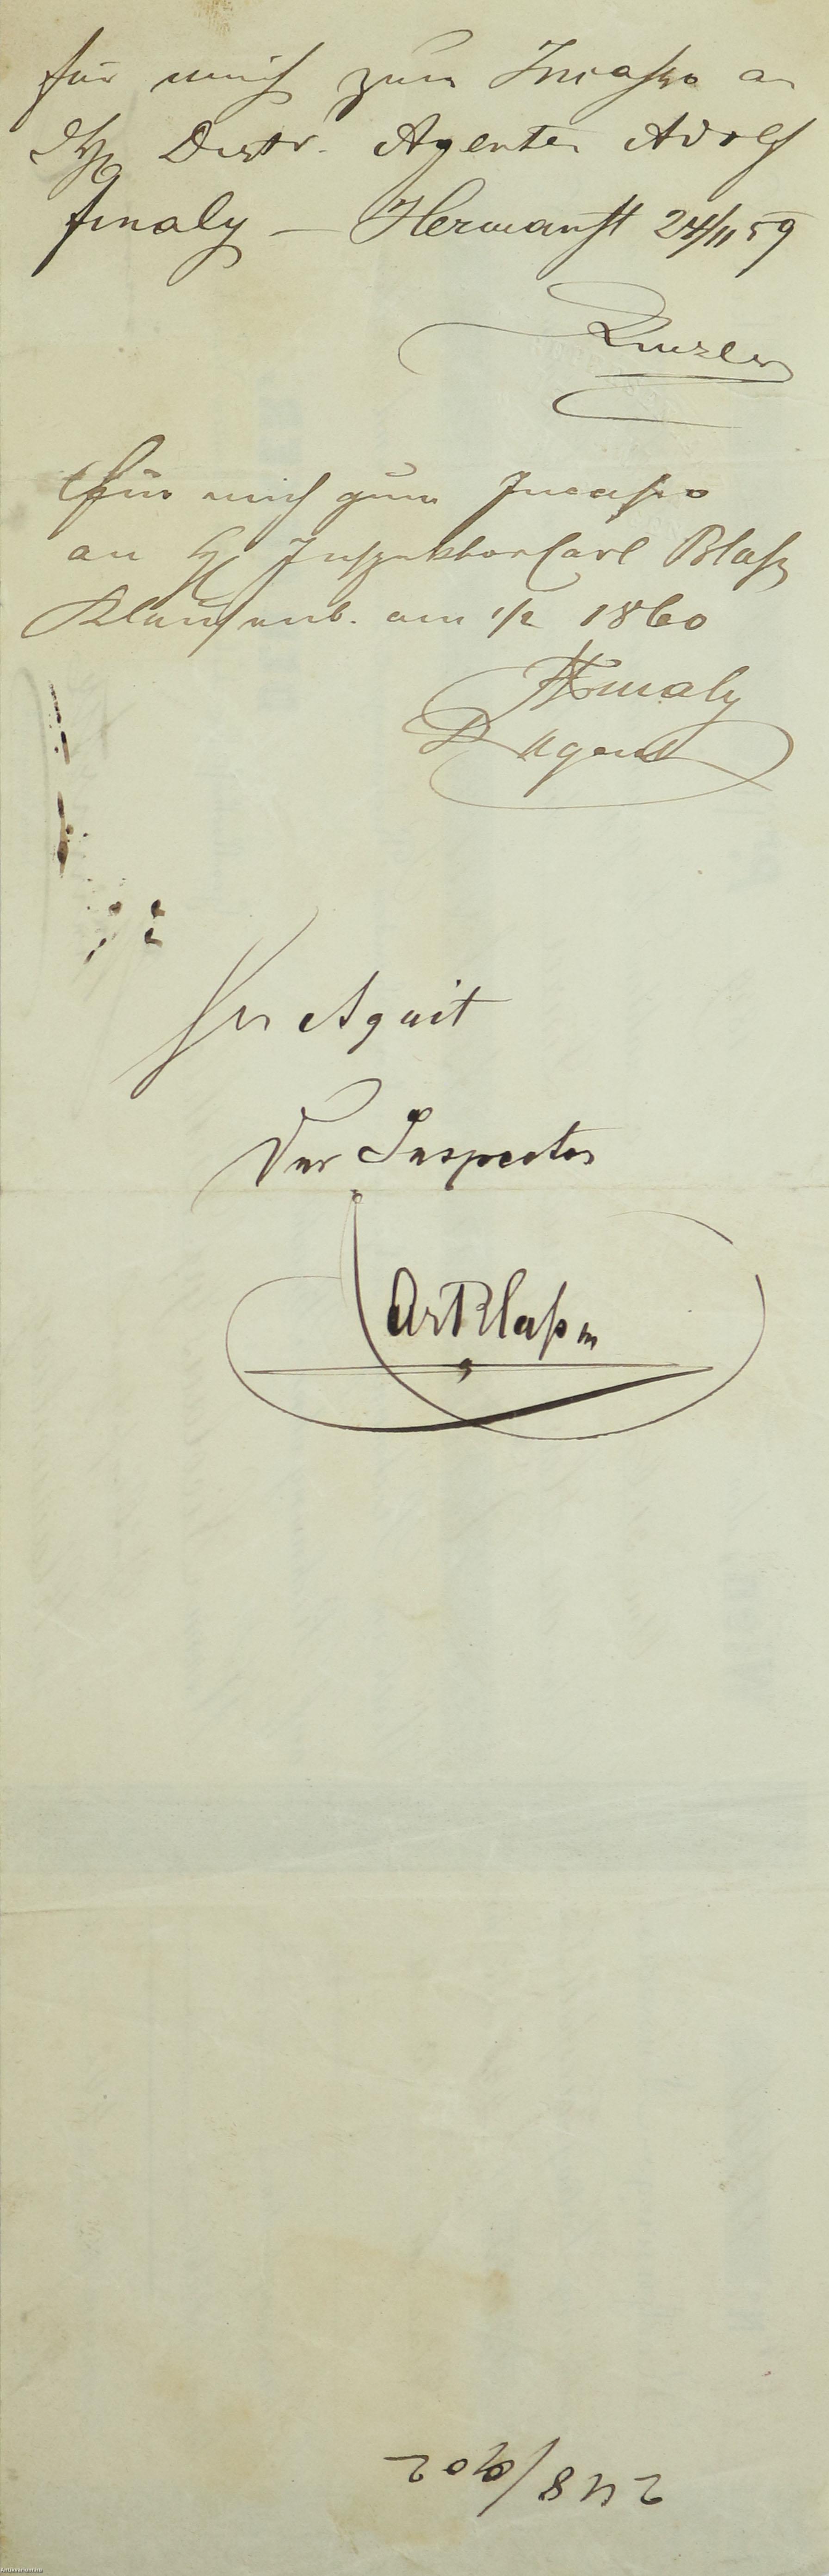 für mich zum Incasso an
HE Distr. Agenten Adolf
Finaly — Hermanst 24/11 59
Für mich zum Incasso
an H Inspektor Carl Blasz
Klausenb. am 1/2 1860
AFinaly
D Agent
Per Aquit
Der Inspector
Car Blasz
Antikvarium.hu